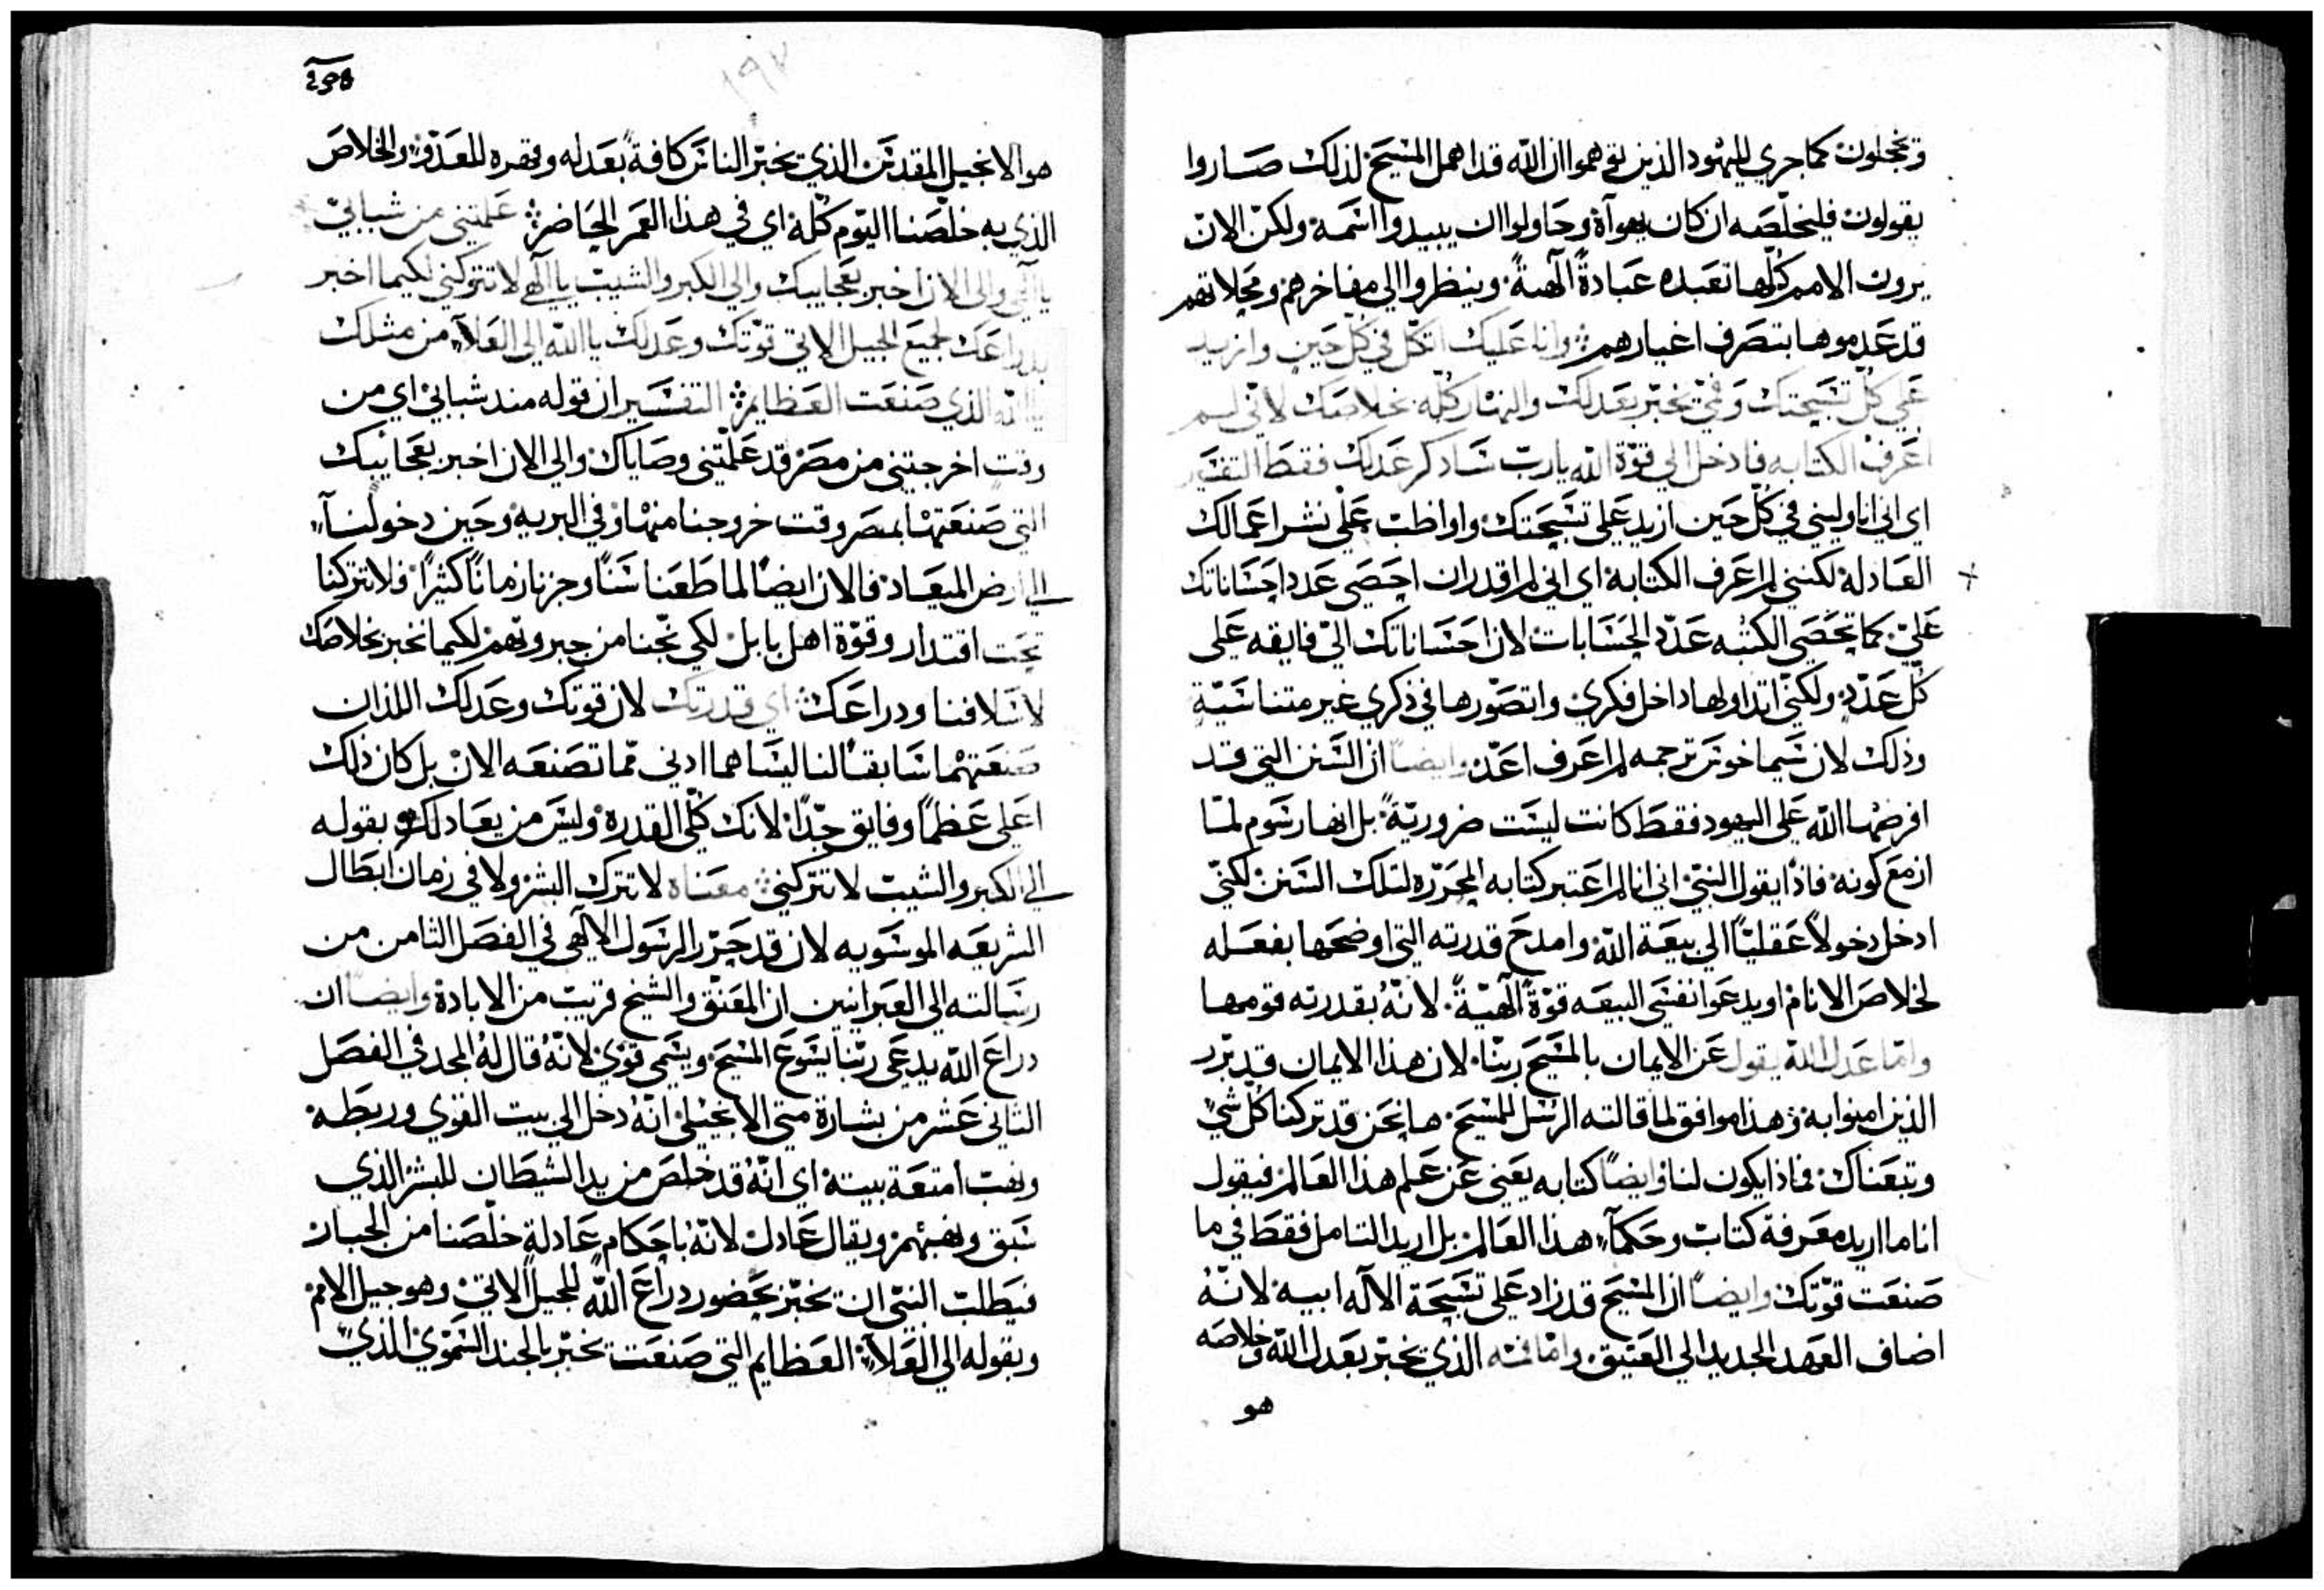 وتخجلون كما جري لليهود الذين توهموا ان الله قد اهمل المسيح لذلك صاروا
يقولون فليخلصه ان كان يهوآه وحاولوا ان يبيدوا اسمه ولكن الان
يرون الامم كلها تعبده عبادةً آلهيةً وينظروا الي مفاخرهم ومجلاتهم
قد عدموها بتصرف اغيارهم وانا عليك اتكل في كل حين وازيد
علي كل تسبحتك وفمي يخبر بعدلك والنهار كله بخلاصك لاني لم
اعرف الكتابه فادخل الي قوة الله يارب ساذكر عدلك فقط التفسير
اي اني انا وليني في كل حين ازيد علي تسبحتك واواظب علي نشر اعمالك
العادلة لكنني لم اعرف الكتابة اي اني لم اقدر ان احصي عدد احساناتك
علي كما تحصي الكتبه عدد الحسابات لان احساناتك الي فايقه علي
كل عدد ولكني اتداولها داخل فكري واتصورها في ذكري غير متناسية
وذلك لان سيماخوس ترجمه لم اعرف اعد وايضاً ان السنن التي قد
افرضها الله علي اليهود فقط كانت ليست ضروريةً بل انها رسوم لما
ازمع كونه فاذاً يقول النبي اني انا لم اعتبر كتابه المحرره لتلك السنن لكني
ادخل دخولاً عقلياً الي بيعة الله وامدح قدرته التي اوضحها بفعله
لخلاص الانام او يدعوا نفسي البيعه قوة آلهيةً لانهُ بقدرته قومها
واما عدل الله يقول عن الايمان بالمسيح ربنا لان هذا الايمان قد برر
الذين امنوا به وهذا موافق لما قالته الرسل للمسيح ها نحن قد تركنا كل شي
وتبعناك فماذا يكون لنا وايضاً كتابه يعني عن علم هذا العالم فيقول
انا ما اريد معرفة كتاب وحكمآء هذا العالم بل اريد التامل فقط في ما
صنعت قوتك وايضاً ان المسيح قد زاد علي تسبحة الآله ابيه لانهُ
اضاف العهد الجديد الي العتيق واما فمه الذي يخبر بعدل الله وخلاصه
هو
هو الانجيل المقدس الذي يخبر الناس كافةً بعدله وقهره للعدو والخلاص
الذي به خلصنا اليوم كله اي في هذا العمر الحاضر علمتني من شبابي
يا آلهي والي الان اخبر بعجايبك والي الكبر والشيب يا آلهي لا تتركني لكيما اخبر
بدراعك لجميع الجيل الاتي قوتك وعدلك يا الله الي العلآء من مثلك
يا الله الذي صنعت العظايم التفسير ان قوله مند شبابي اي من
وقت اخرجتني من مصر قد علمتني وصاياك والي الان اخبر بعجايبك
التي صنعتها بمصر وقت خروجنا منها وفي البريه وحين دخولنا
الي ارض الميعاد فالان ايضاً لما طعنا سناً وجزنا زماناً كثيراً فلا تتركنا
تحت اقتدار وقوة اهل بابل لكي نجنا من جبروتهم لكيما نخبر بخلاصك
لاسلافنا ودراعك اي قدرتك لان قوتك وعدلك اللذان
صنعتهما سابقاً لنا ليسا هما ادني مما تصنعه الان بل كان ذلك
اعلي عظماً وفايق جداً لانك كلي القدره وليس من يعادلك وبقوله
الي الكبر والشيب لا تتركني معناه لا تترك البشر ولا في زمان ابطال
الشريعه الموسويه لان قد حرر الرسول الآلهي في الفصل الثامن من
رسالته الي العبرانيين ان المعتق والشيخ قريب من الابادة وايضاً ان
دراع الله يدعي ربنا يسوع المسيح ويسمي قوي لانهُ قال لهُ المجد في الفصل
الثاني عشر من بشارة متي الانجيلي انهُ دخل الي بيت القوي وربطه
ونهب امتعة بيته اي انهُ قد خلص من يد الشيطان للبشر الذي
سبق ونهبهم ويقال عادل لانهُ باحكام عادلة خلصنا من الجبار
فيطلب النبي ان يخبر بحضور دراع الله للجيل الاتي وهو جيل الامم
وبقوله الي العلآء العظايم التي صنعت يخبر بالجند السموي الذي